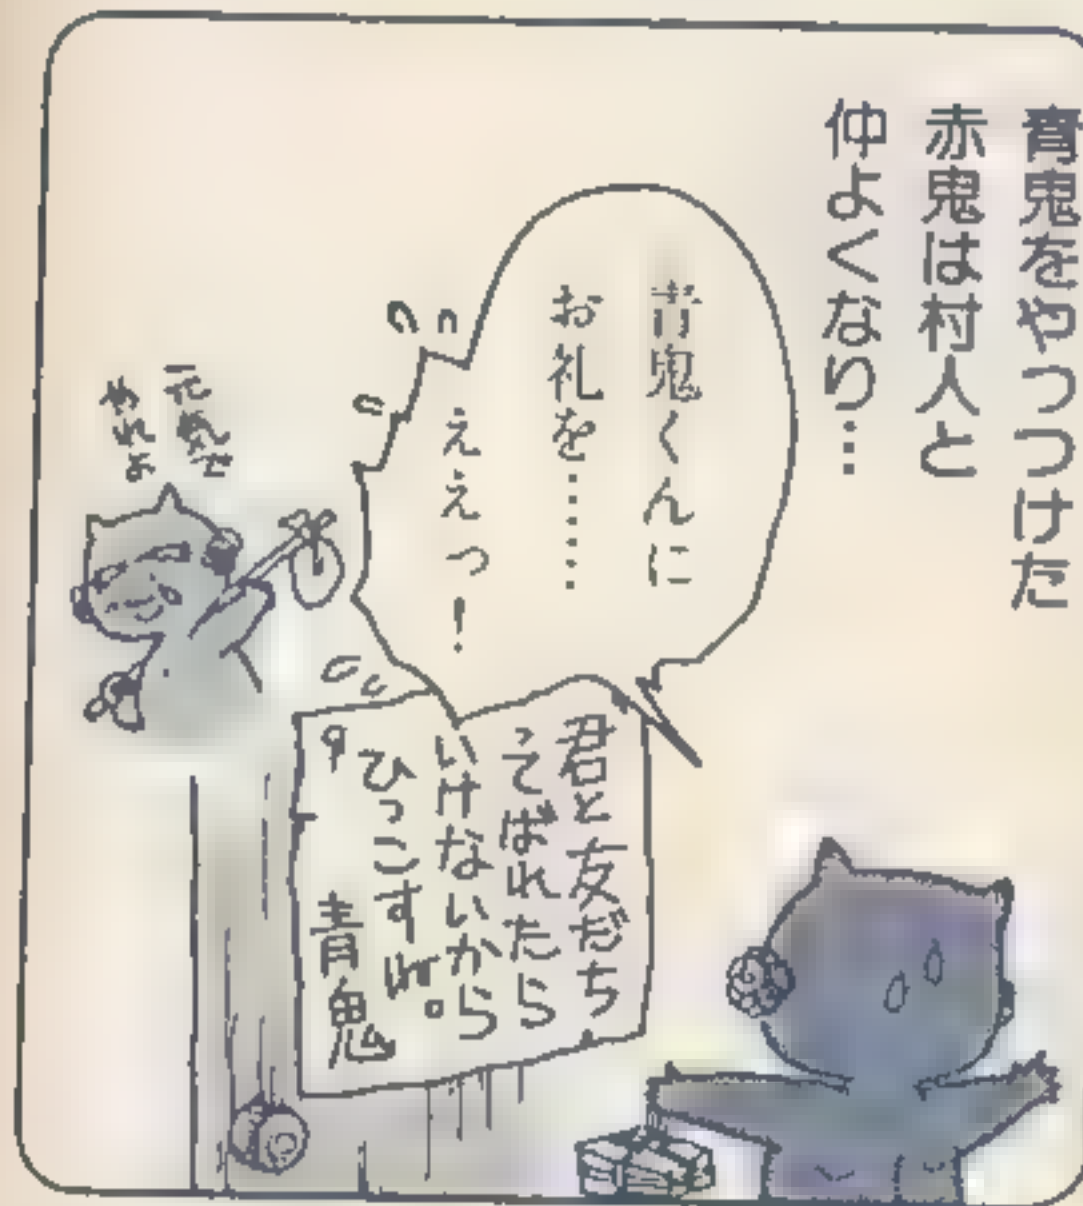 青鬼をやっつけた
赤鬼は村人と
仲よくなり…
青鬼くんに
お礼を……
ええっ!
君と友だち
ってばれたら
いけないから
ひっこすね。
青鬼
元気で
やれよ